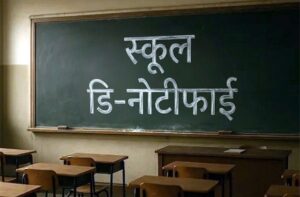 स्कूल
डि-नोटीफाई